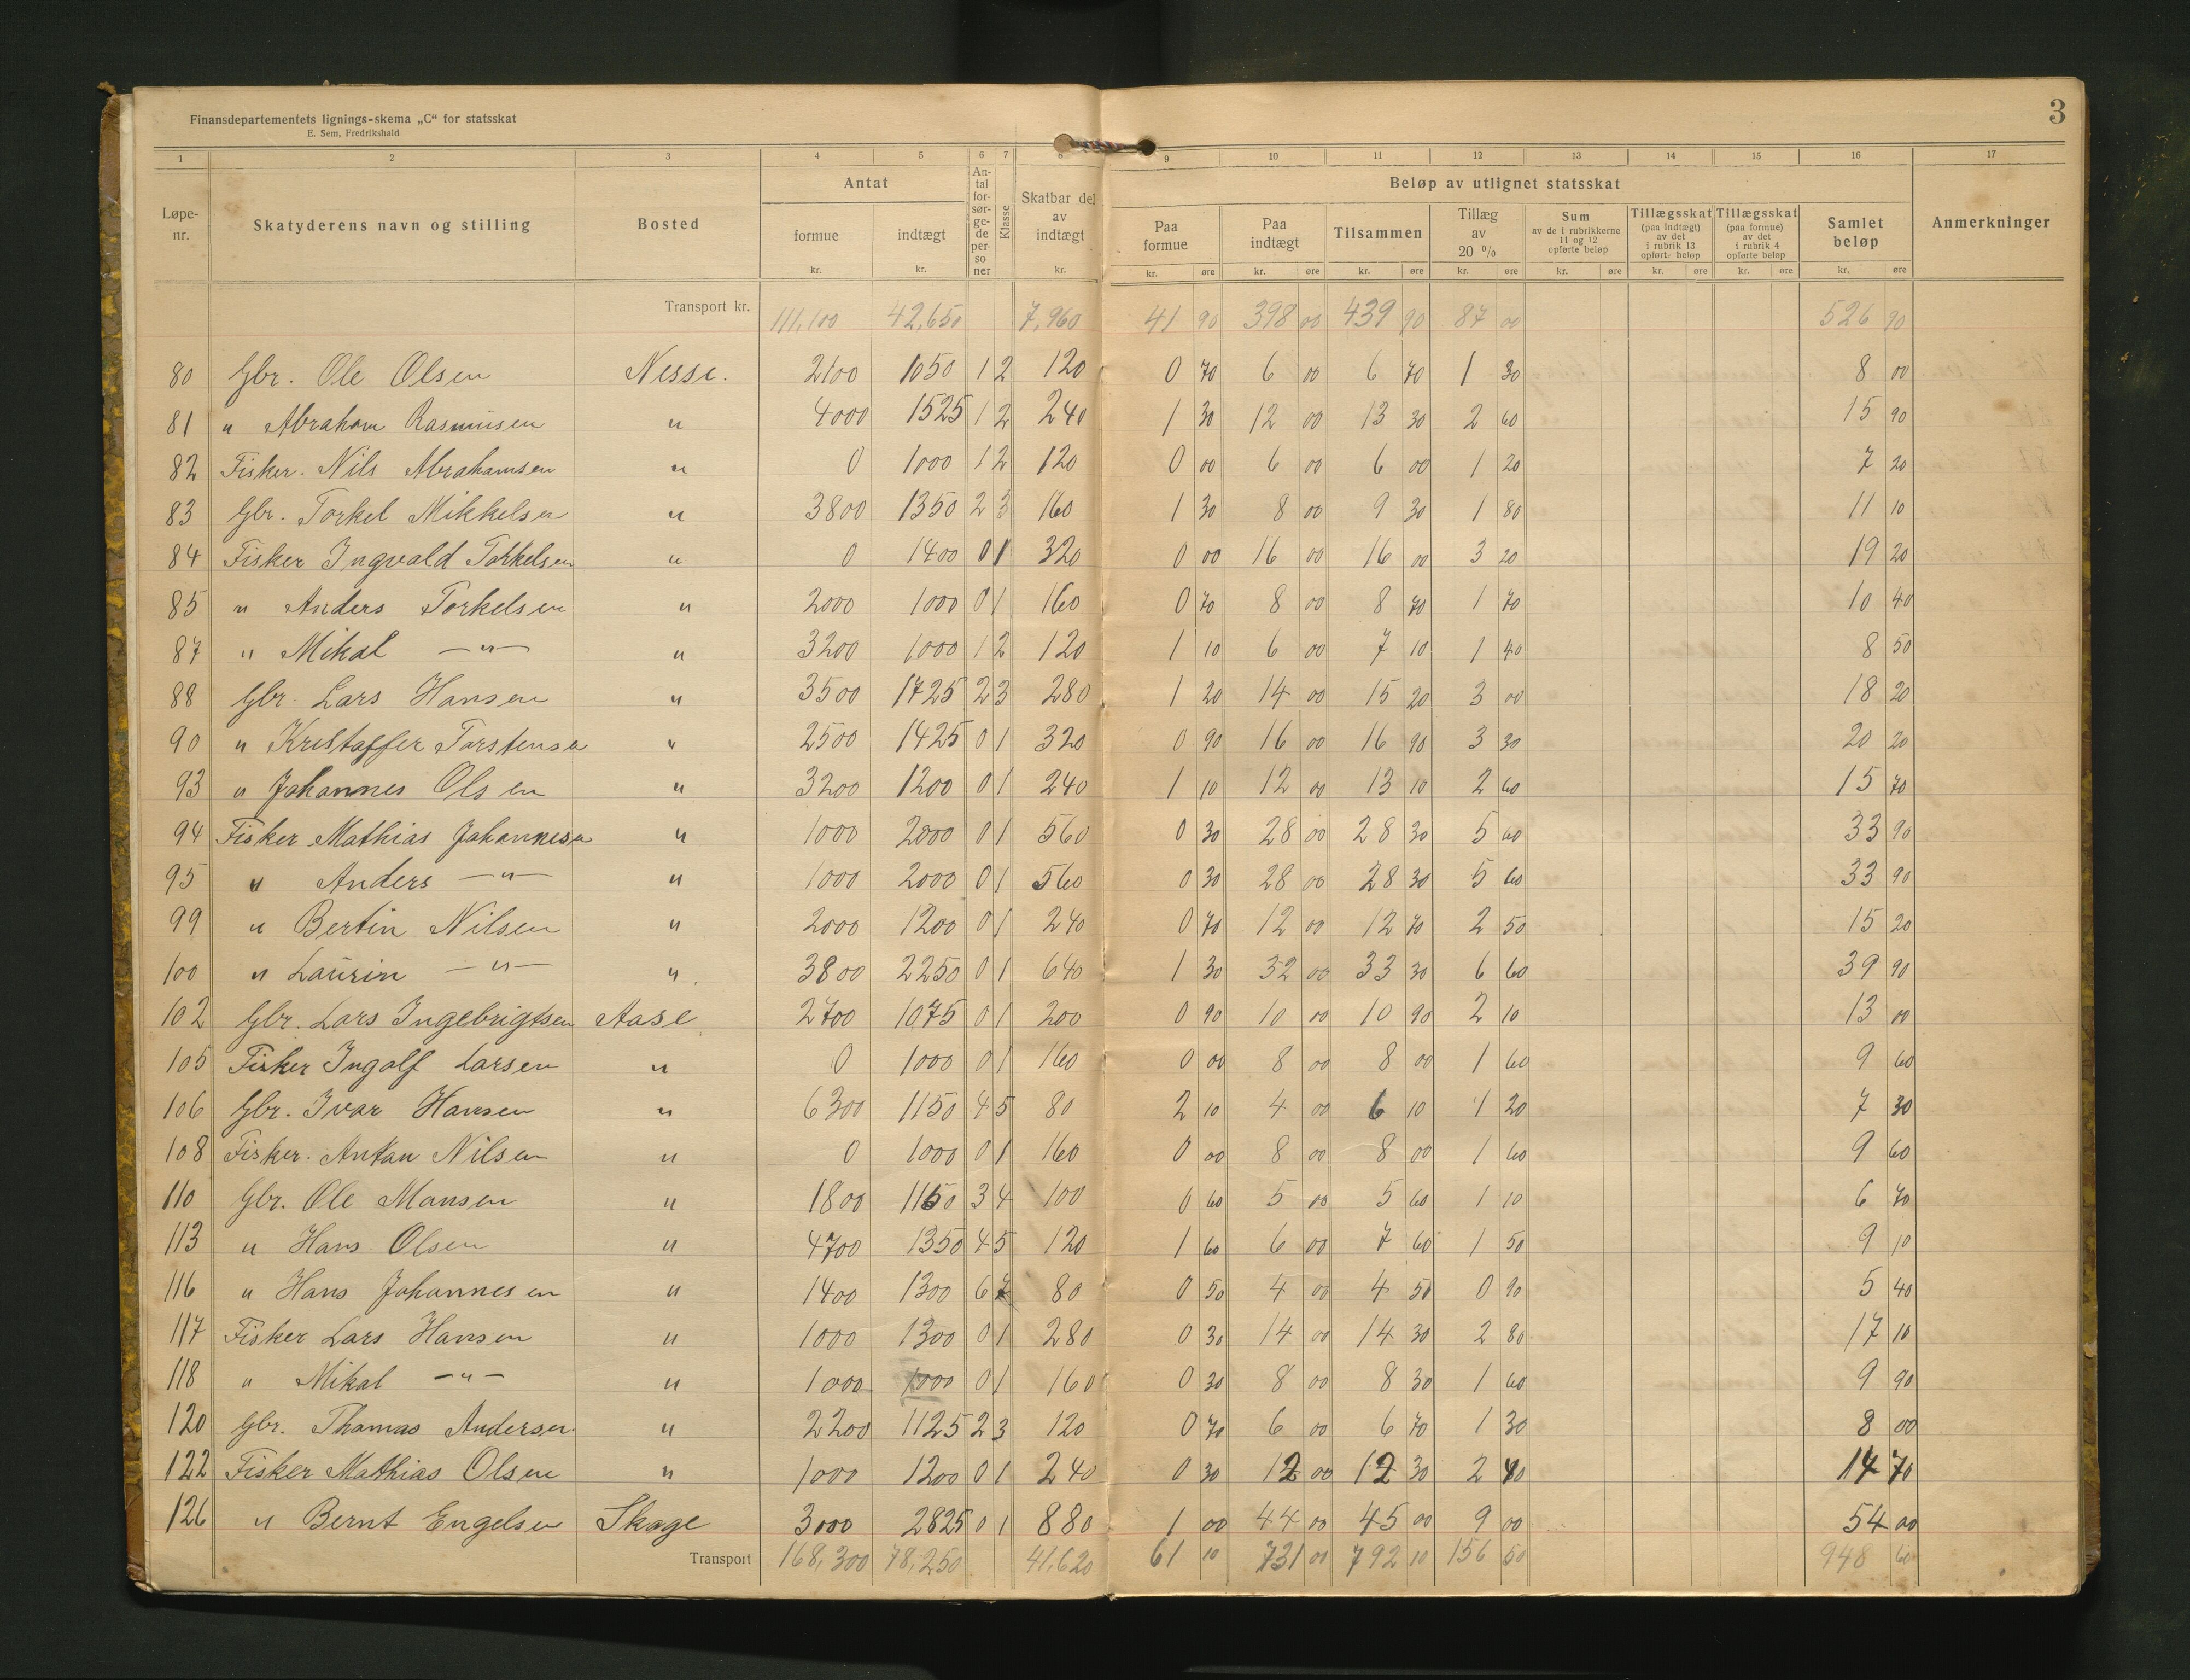 Finansdepartementets lignings-skema „C“ for statsskat
E. Sem, Fredrikshald
3
1 2 3 4 5 6 7 8 9 10 11 12 13 14 15 16 17
Løpe-nr. Skatyderens navn og stilling Bosted Antat formue kr. indtægt kr. An-tal for-sør-ge-de per-so ner Klasse Skatbar del av indtægt kr. Beløp av utlignet statsskat Paa formue kr. øre Paa indtægt kr. øre Tilsammen kr. øre Tillæg av 20 % kr. øre Sum av de i rubrikkerne 11 og 12 opførte beløp kr. øre Tillægsskat (paa indtægt) av det i rubrik 13 opførte beløp kr. øre Tillægsskat (paa formue) av det i rubrik 4 opførte beløp kr. øre Samlet beløp kr. øre Anmerkninger
Transport kr. 111,100 42,650 7,960 41 90 398 00 439 90 87 00 526 90
80 Gbr. Ole Olsen Nesse. 2100 1050 1 2 120 0 70 6 00 6 70 1 30 8 00
81 " Abraham Rasmusen " 4000 1525 1 2 240 1 30 12 00 13 30 2 60 15 90
82 Fisker. Nils Abrahamsen " 0 1000 1 2 120 0 00 6 00 6 00 1 20 7 20
83 Gbr. Torkel Mikkelsen " 3800 1350 2 3 160 1 30 8 00 9 30 1 80 11 10
84 Fisker Ingvald Torkelsen " 0 1400 0 1 320 0 00 16 00 16 00 3 20 19 20
85 " Anders Torkelsen " 2000 1000 0 1 160 0 70 8 00 8 70 1 70 10 40
87 " Mikal —"— " 3200 1000 1 2 120 1 10 6 00 7 10 1 40 8 50
88 Gbr. Lars Hansen " 3500 1725 2 3 280 1 20 14 00 15 20 3 00 18 20
90 " Kristoffer Torstensen " 2500 1425 0 1 320 0 90 16 00 16 90 3 30 20 20
93 " Johannes Olsen " 3200 1200 0 1 240 1 10 12 00 13 10 2 60 15 70
94 Fisker Mathias Johannesen " 1000 2000 0 1 560 0 30 28 00 28 30 5 60 33 90
95 " Anders —"— " 1000 2000 0 1 560 0 30 28 00 28 30 5 60 33 90
99 " Bertin Nilsen " 2000 1200 0 1 240 0 70 12 00 12 70 2 50 15 20
100 " Laurin —"— " 3800 2250 0 1 640 1 30 32 00 33 30 6 60 39 90
102 Gbr. Lars Ingebrigtsen Aase 2700 1075 0 1 200 0 90 10 00 10 90 2 10 13 00
105 Fisker Ingolf Larsen " 0 1000 0 1 160 0 00 8 00 8 00 1 60 9 60
106 Gbr. Ivar Hansen " 6300 1150 4 5 80 2 10 4 00 6 10 1 20 7 30
108 Fisker. Antan Nilsen " 0 1000 0 1 160 0 00 8 00 8 00 1 60 9 60
110 Gbr. Ole Monsen " 1800 1150 3 4 100 0 60 5 00 5 60 1 10 6 70
113 " Hans Olsen " 4700 1350 4 5 120 1 60 6 00 7 60 1 50 9 10
116 " Hans Johannesen " 1400 1300 6 7 80 0 50 4 00 4 50 0 90 5 40
117 Fisker Lars Hansen " 1000 1300 0 1 280 0 30 14 00 14 30 2 80 17 10
118 " Mikal —"— " 1000 1000 0 1 160 0 30 8 00 8 30 1 60 9 90
120 Gbr. Thomas Andersen " 2200 1125 2 3 120 0 70 6 00 6 70 1 30 8 00
122 Fisker Mathias Olsen " 1000 1200 0 1 240 0 30 12 00 12 30 2 40 14 70
126 " Bernt Engelsen Skage 3000 2825 0 1 880 1 00 44 00 45 00 9 00 54 00
Transport 168,300 78,250 41,620 61 10 731 00 792 10 156 50 948 60